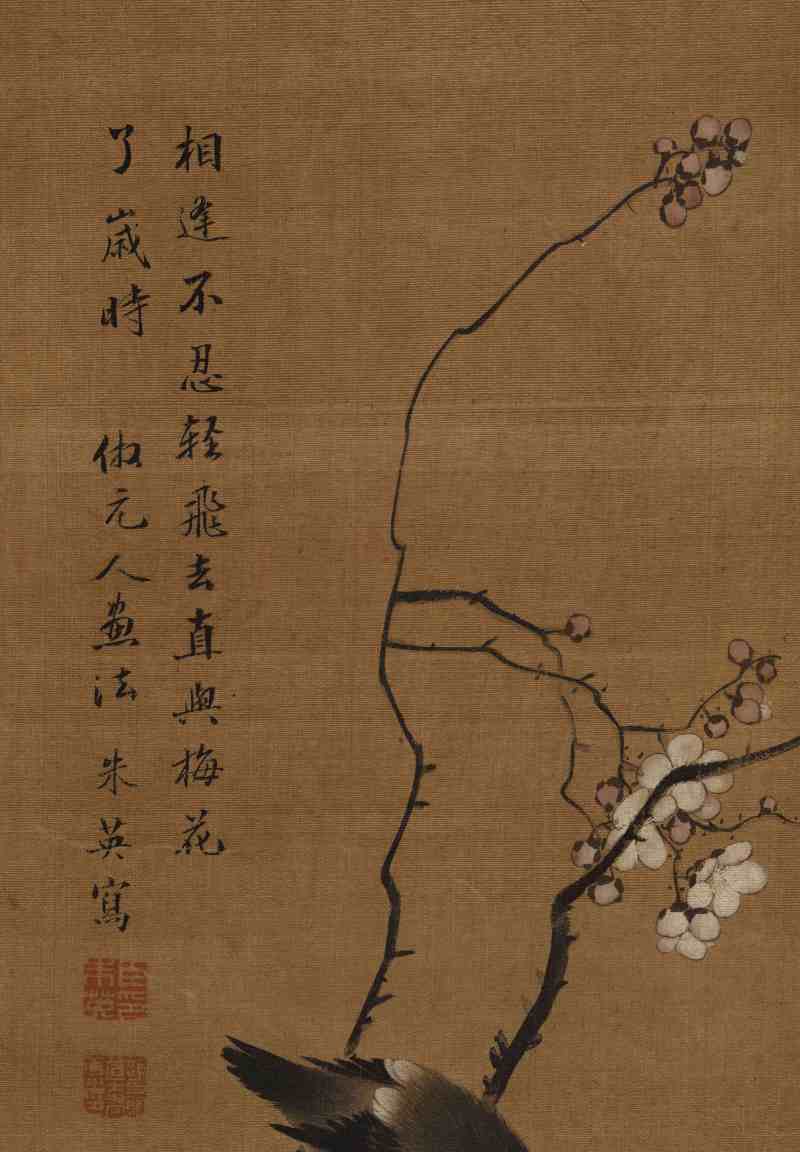 相逢不忍轻飛去直與梅花
了歲時 倣元人畫法 朱英寫